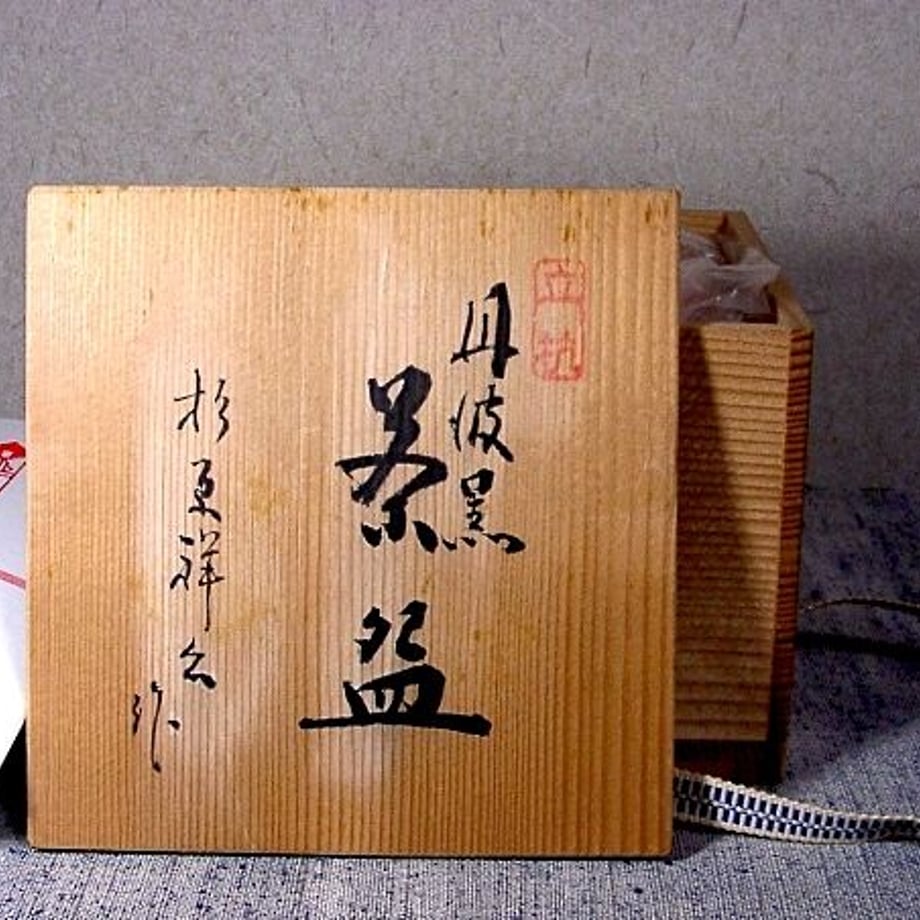 立杭
丹波黒
茶盌
杉原祥作